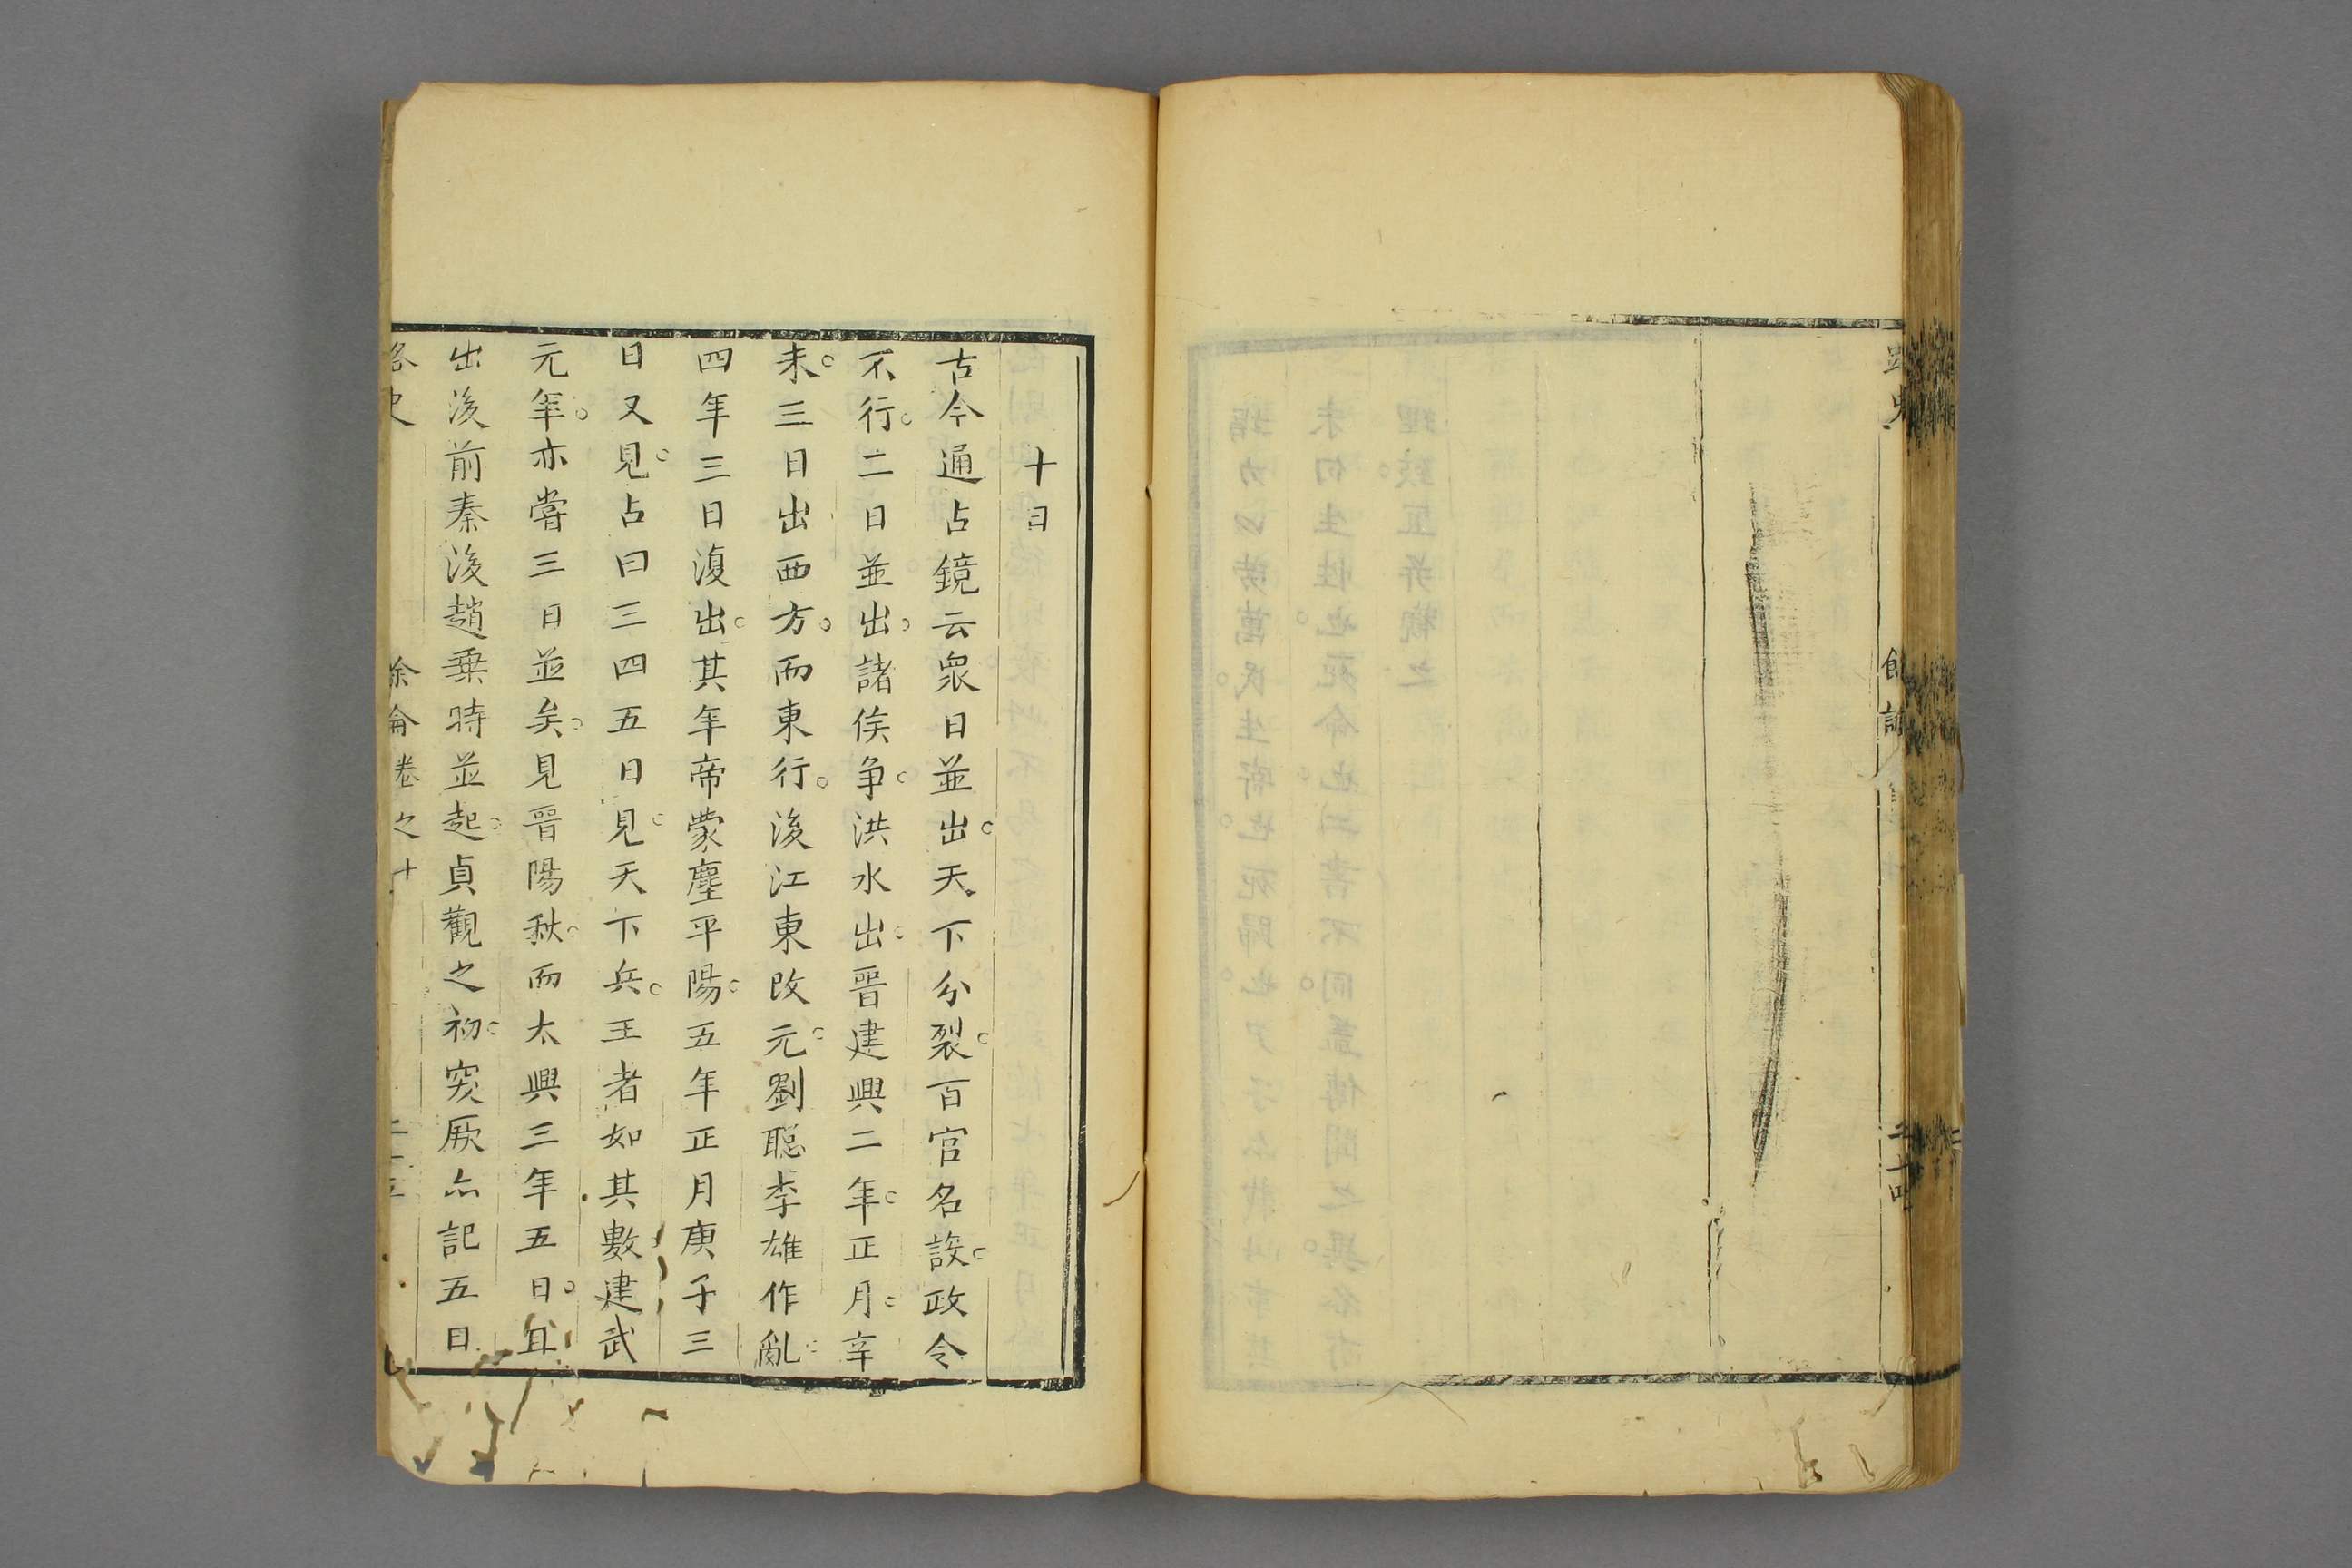 十日
古今通占鏡云衆日並出天下分裂百官名設政令
不行二日並出諸侯争洪水出晉建興二年正月辛
未三日出西方而東行後江東改元劉聡李雄作亂
四年三日復出其年帝蒙塵平陽五年正月庚子三
日又見占曰三四五日見天下兵王者如其數建武
元年亦嘗三日並矣見晉陽秋而太興三年五日
出後前秦後趙乗時並起貞觀之初突厥亦記五日
卷之十